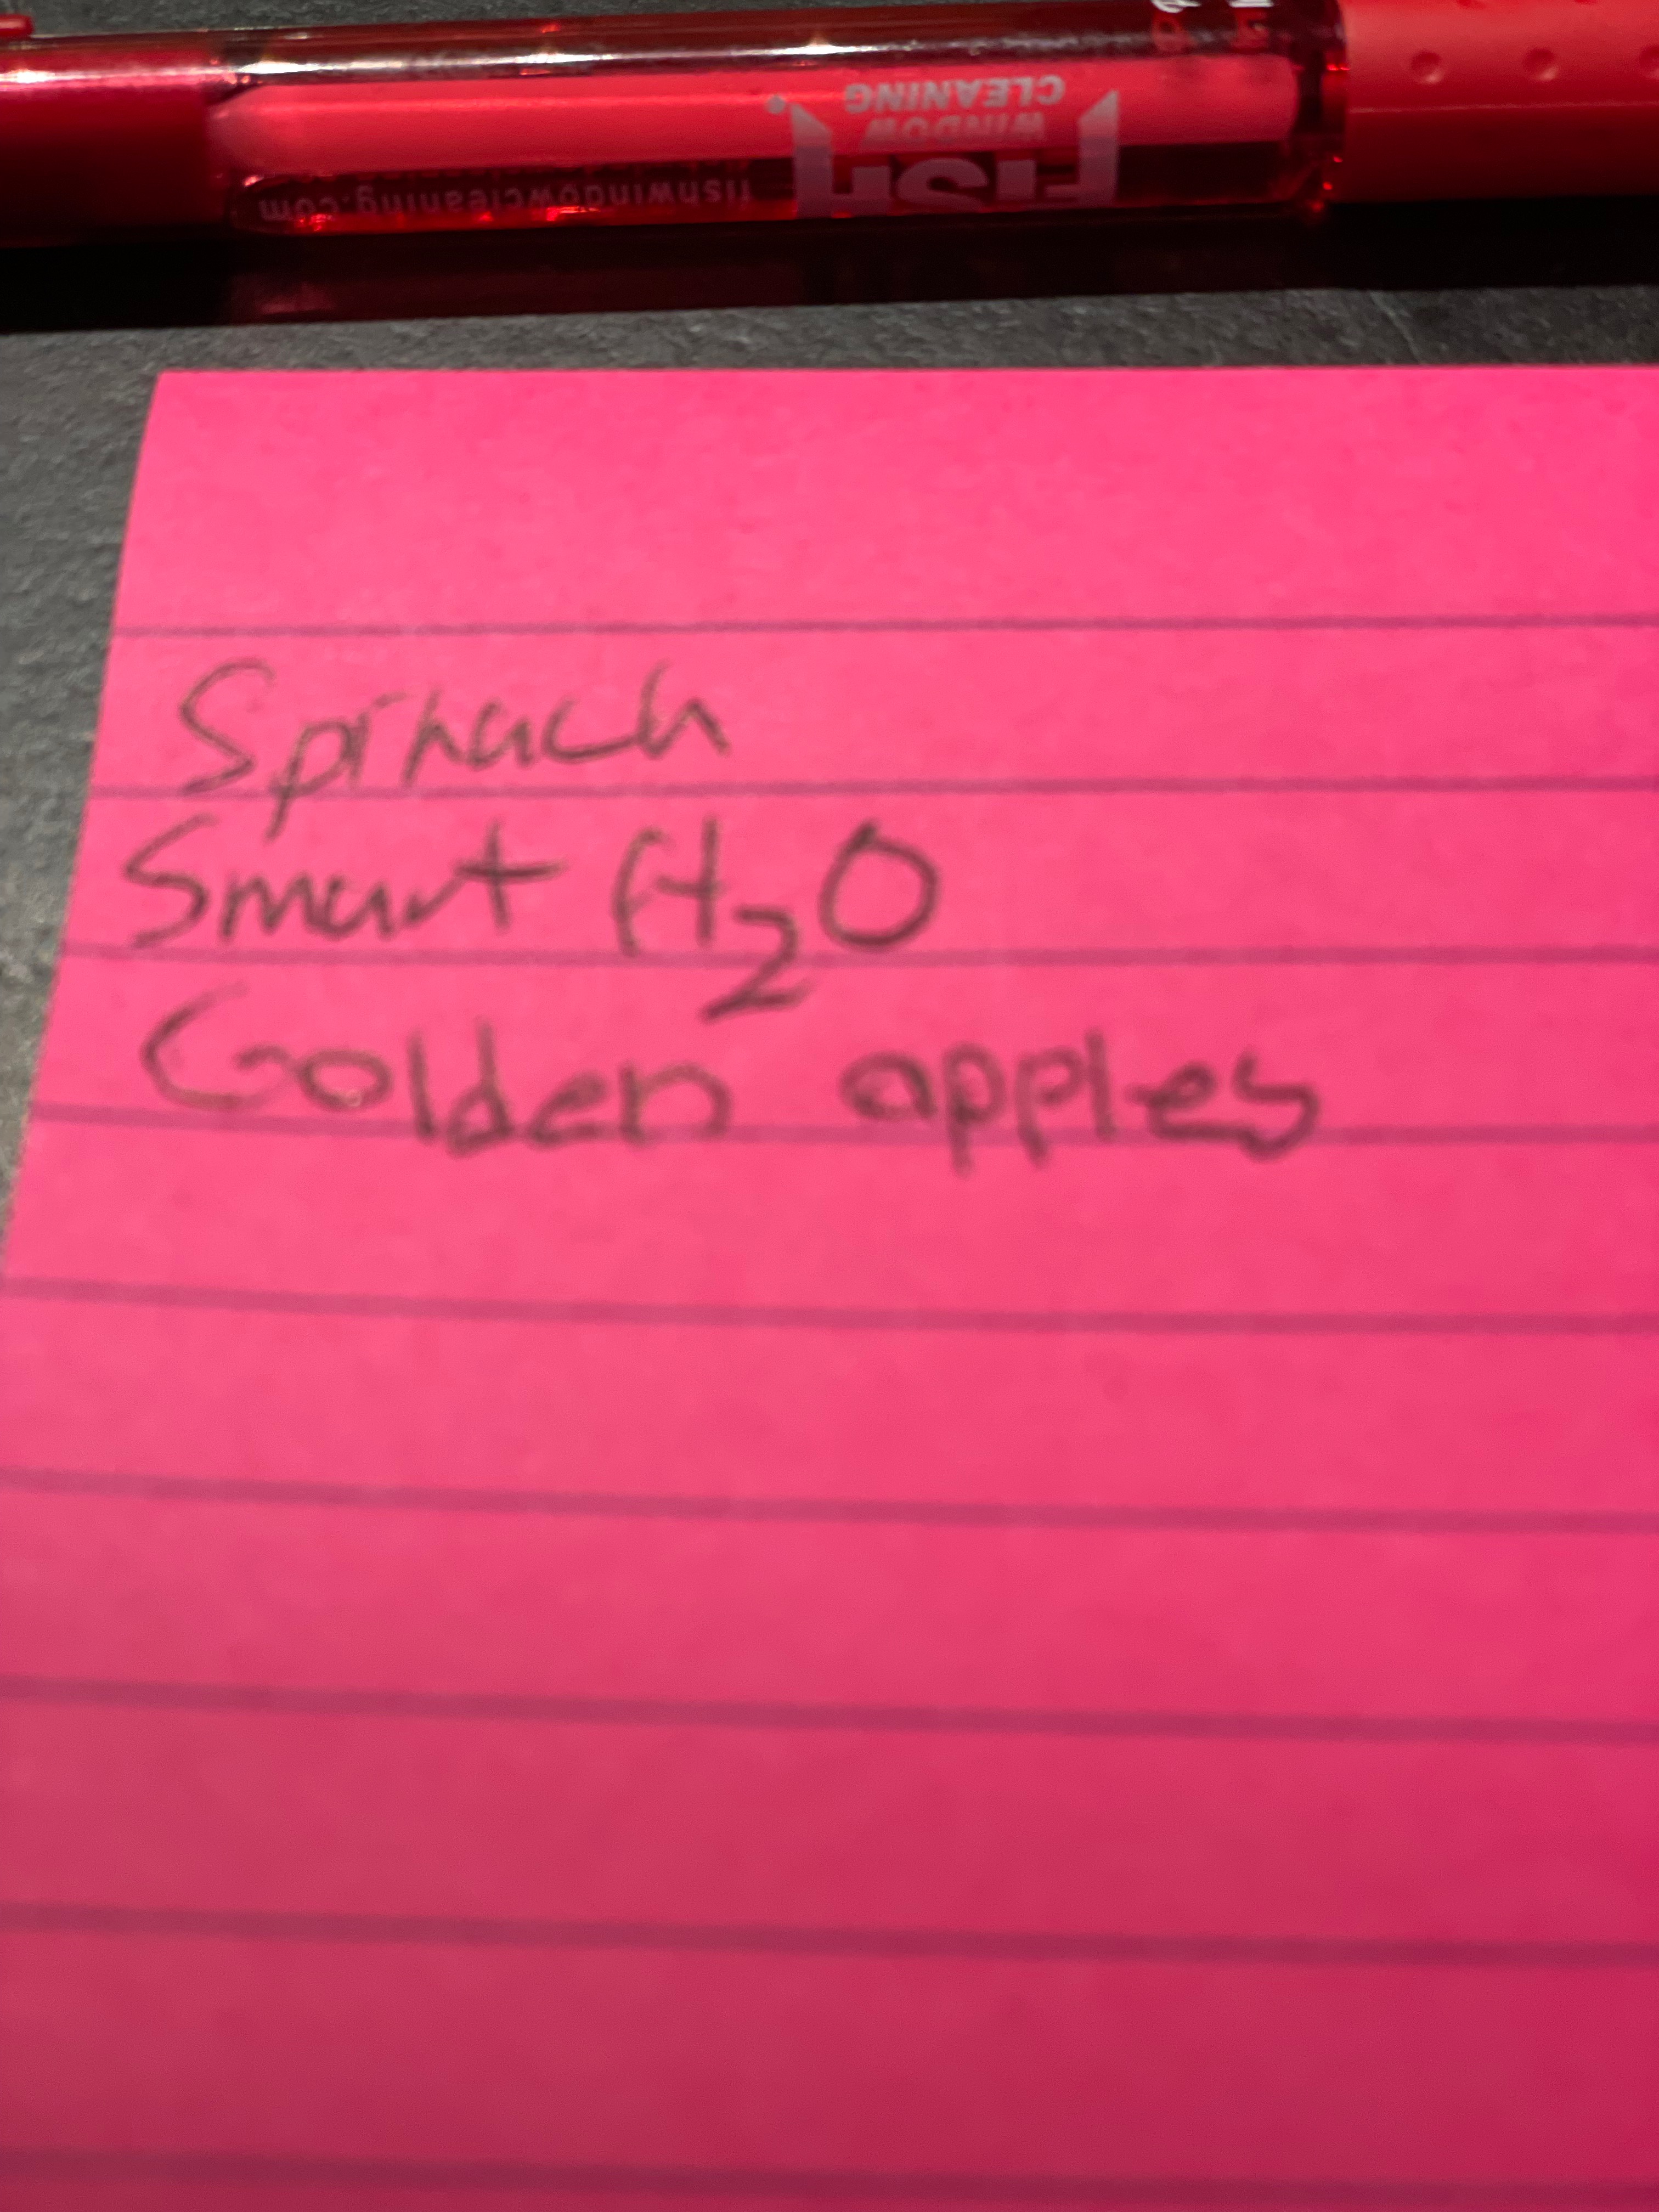 FISH
WINDOW
CLEANING
fishwindowcleaning.com
Spinach
Smart H₂O
Golden apples